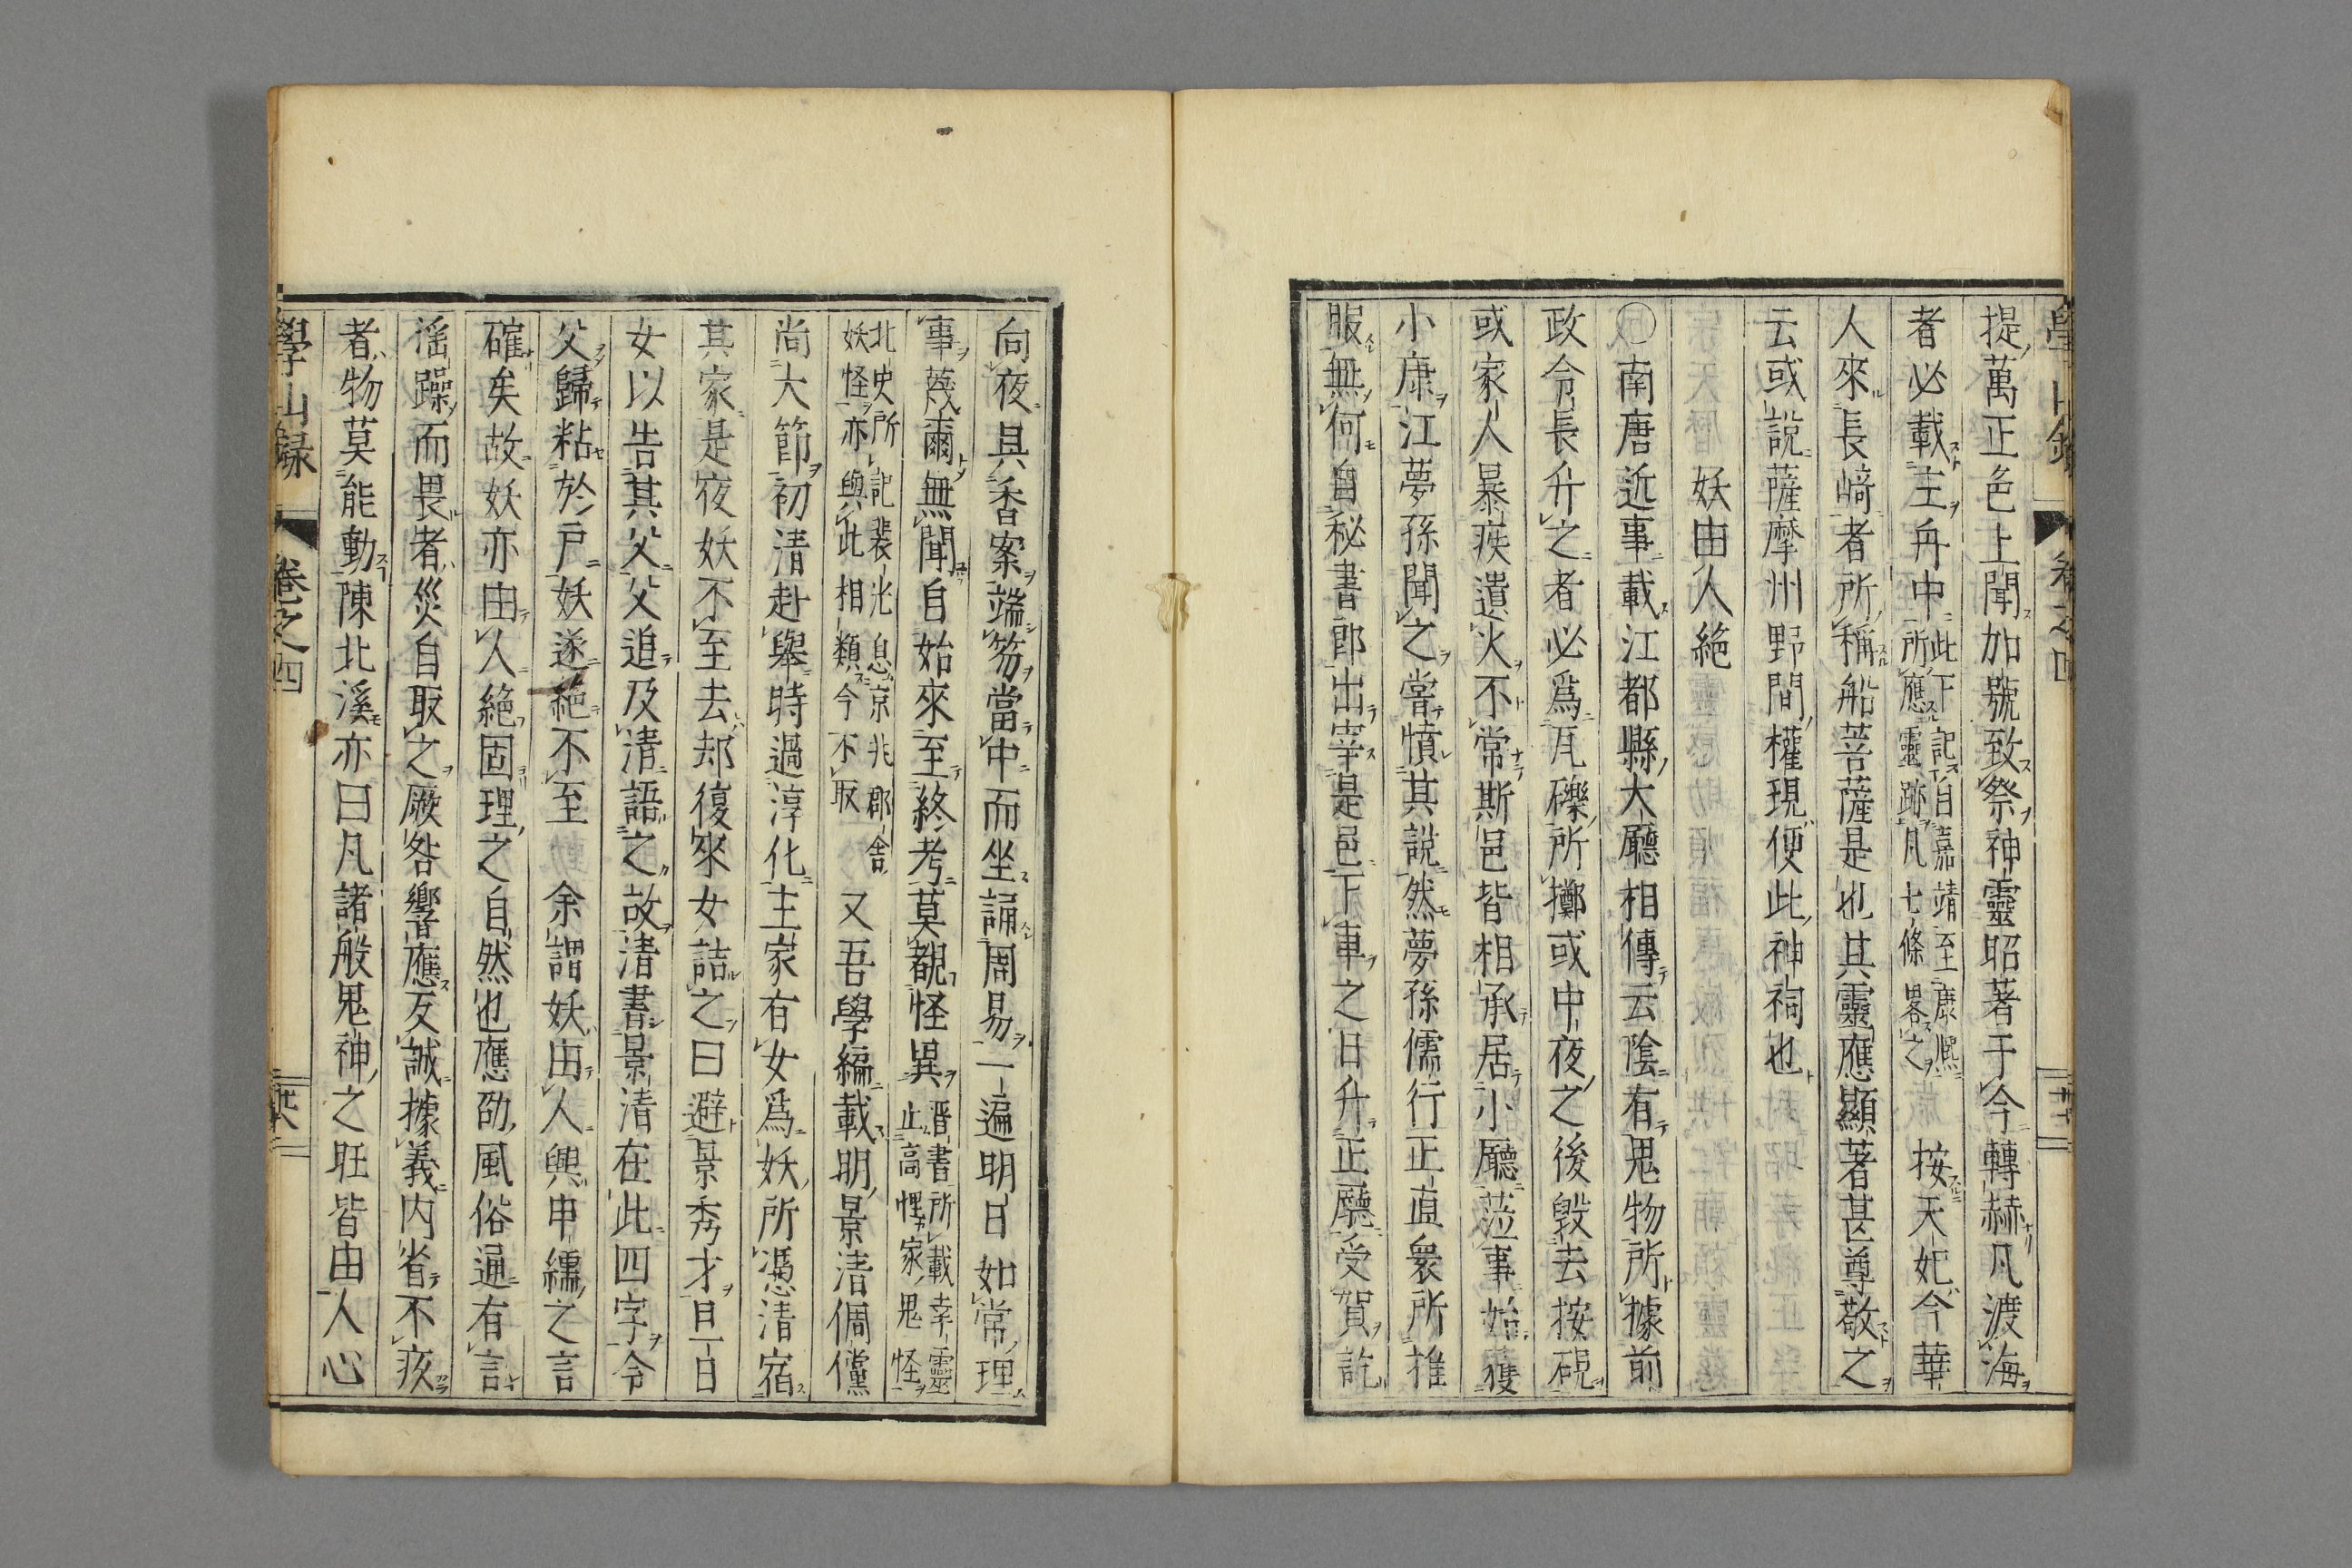 提萬正色上聞加號致祭神靈昭著于今轉赫凡渡海
者必載主舟中此下記自嘉靖至康熙所應靈跡凡七條畧之 按天妃今華
人來長﨑者所稱船菩薩是也其靈應顯著甚尊敬之
云或說薩摩州野間權現便此神祠也
妖由人絶
〇南唐近事載江都縣大廳相傳云陰有鬼物所據前
政令長升之者必爲瓦礫所擲或中夜之後毀去按硯
或家人暴疾遺火不常斯邑皆相承居小廳蒞事始獲
小康江夢孫聞之嘗憤其說然夢孫儒行正直衆所推
服無何自秘書郎出宰是邑下車之日升正廳受賀訖
向夜具香案端笏當中而坐誦周易一遍明日如常理
事蔑爾無聞自始來至終考莫覩怪異晉書所載幸靈止高悝家鬼怪
北史所記裴光息京兆郡舍妖怪亦與此相類今不取 又吾學編載明景清倜儻
尚大節初清赴舉時過淳化主家有女爲妖所憑清宿
其家是夜妖不至去却復來女詰之曰避景秀才旦日
女以告其父父追及清語之故清書景清在此四字令
父歸粘於戸妖遂絶不至 余謂妖由人興申繻之言
確矣故妖亦由人絶固理之自然也應劭風俗通有言
徭躁而畏者災自取之厥咎嚮應反誠據義内省不疚
者物莫能動陳北溪亦曰凡諸般鬼神之旺皆由人心
學山録 卷之四 廿六